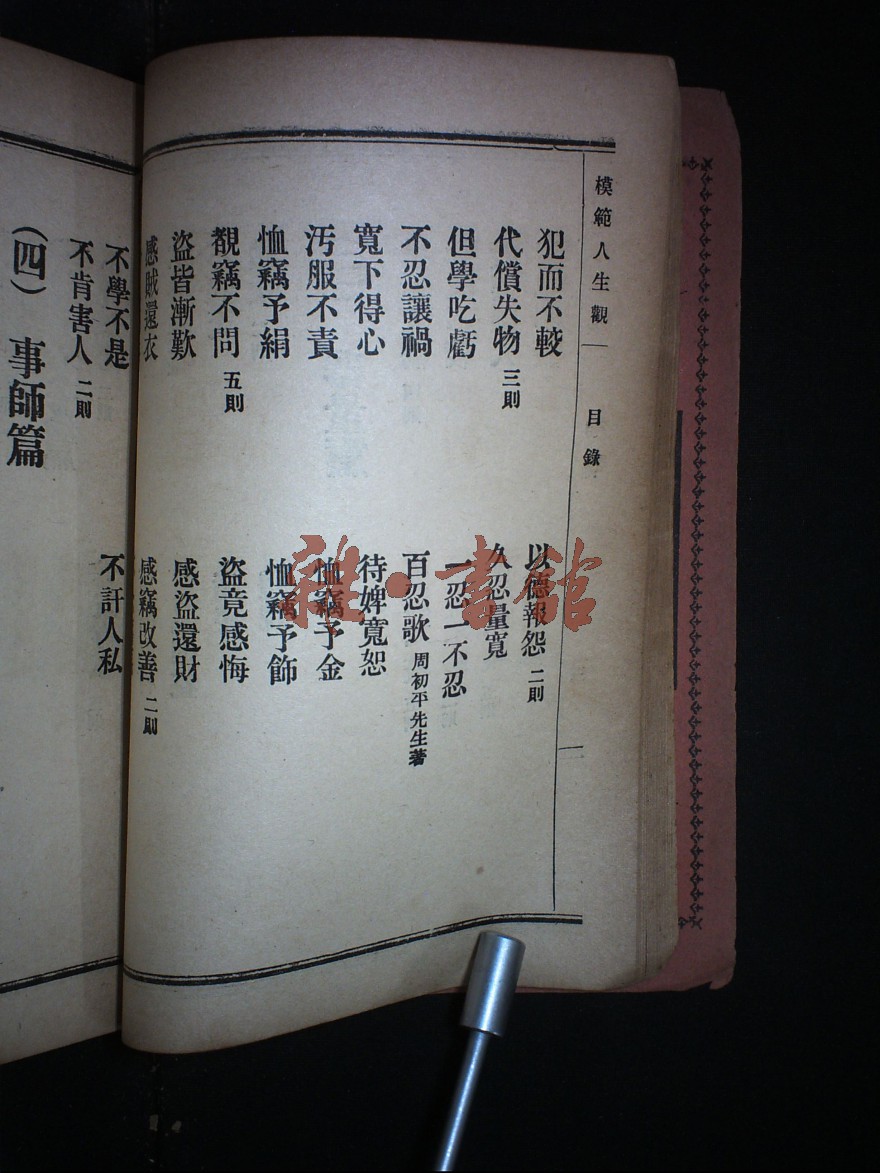 模範人生觀
目錄
一
犯而不較
以德報怨 二則
代償失物 三則
久忍量寬
但學吃虧
一忍一不忍
不忍讓禍
百忍歌 周初平先生著
寬下得心
待婢寬恕
汚服不責
恤竊予金
恤竊予絹
恤竊予飾
覩竊不問 五則
盜竟感悔
盜皆漸歎
感盜還財
感賊還衣
感竊改善 二則
不學不是
不訐人私
不肯害人 二則
(四) 事師篇
雜·書館